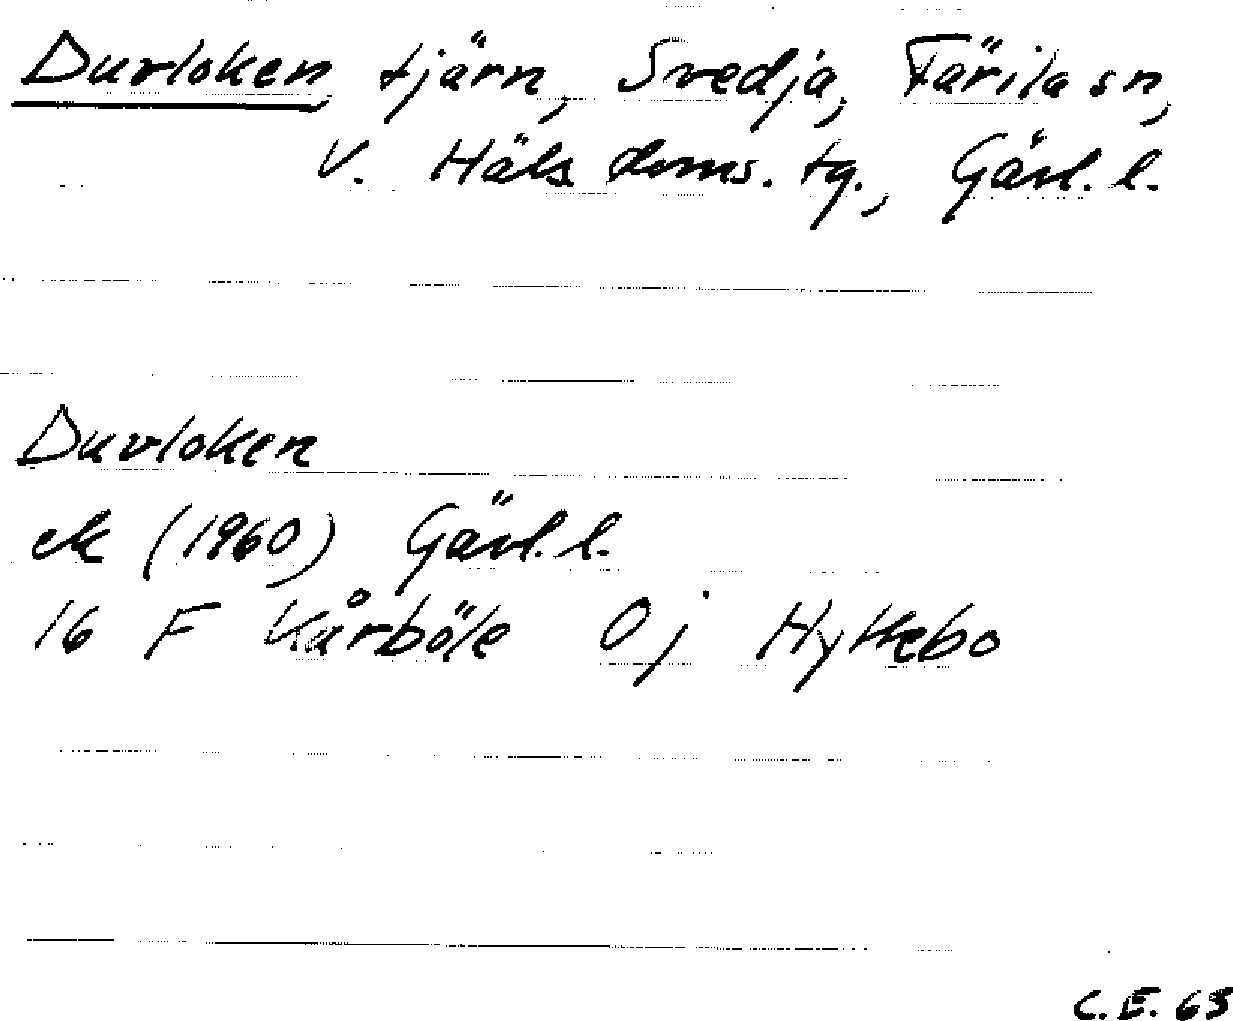 Duvloken tjärn, Svedja, Färila sn,
V. Häls doms. tg., Gävl. l.
Duvloken
ek (1960) Gävl. l.
16 F Kårböle 0 j Hyttebo
C.E. 63